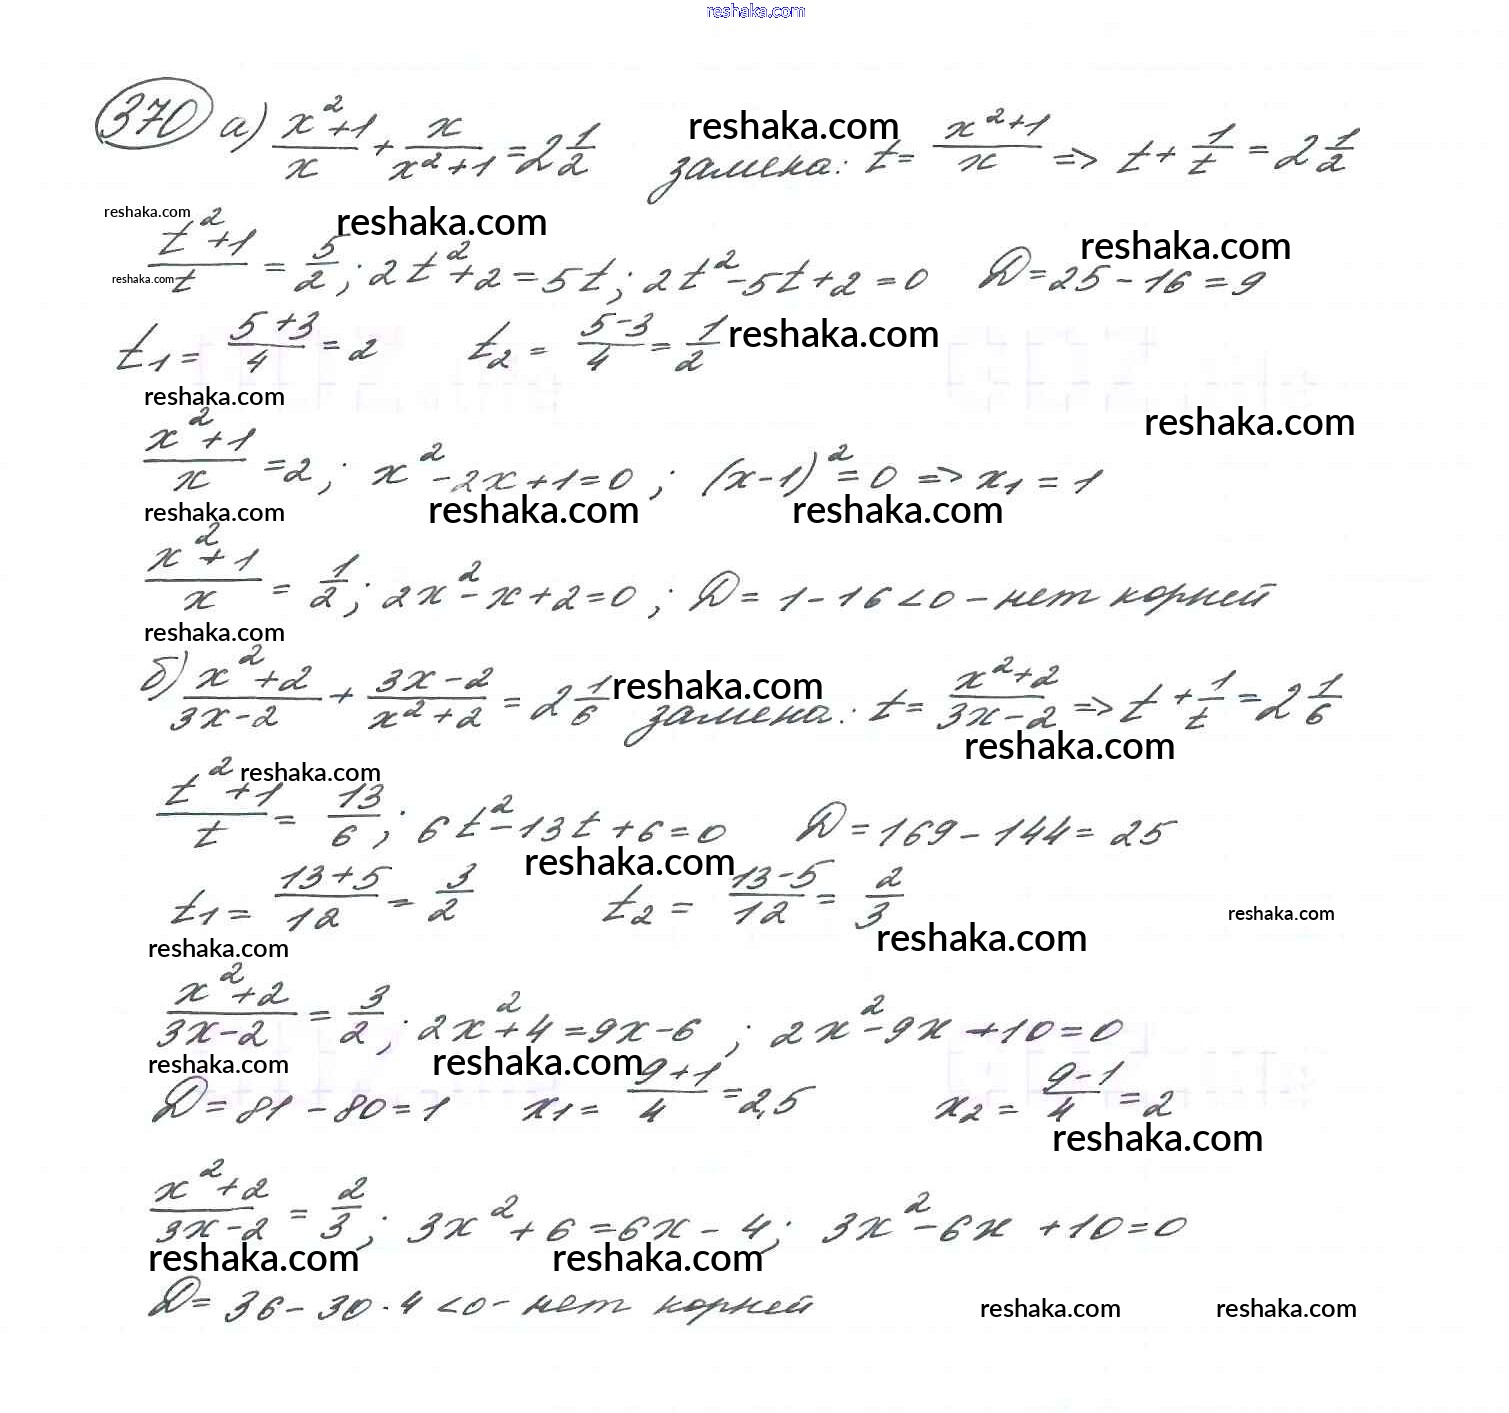 reshaka.com
370 а) (x²+1)/x + x/(x²+1) = 2 1/2 reshaka.com замена: t = (x²+1)/x => t + 1/t = 2 1/2
reshaka.com reshaka.com reshaka.com
(t²+1)/t = 5/2; 2t²+2=5t; 2t²-5t+2=0 D=25-16=9
reshaka.com
t₁ = (5+3)/4 = 2 t₂ = (5-3)/4 = 1/2 reshaka.com
reshaka.com reshaka.com
(x²+1)/x = 2; x²-2x+1=0; (x-1)²=0 => x₁=1
reshaka.com reshaka.com reshaka.com
(x²+1)/x = 1/2; 2x²-x+2=0; D=1-16<0 - нет корней
reshaka.com
б) (x²+2)/(3x-2) + (3x-2)/(x²+2) = 2 1/6 reshaka.com замена: t = (x²+2)/(3x-2) => t + 1/t = 2 1/6
reshaka.com reshaka.com
(t²+1)/t = 13/6; 6t²-13t+6=0 D=169-144=25
reshaka.com
t₁ = (13+5)/12 = 3/2 t₂ = (13-5)/12 = 2/3 reshaka.com
reshaka.com reshaka.com
(x²+2)/(3x-2) = 3/2; 2x²+4=9x-6; 2x²-9x+10=0
reshaka.com reshaka.com
D=81-80=1 x₁ = (9+1)/4 = 2,5 x₂ = (9-1)/4 = 2
reshaka.com
(x²+2)/(3x-2) = 2/3; 3x²+6=6x-4; 3x²-6x+10=0
reshaka.com reshaka.com
D=36-30·4<0 - нет корней reshaka.com reshaka.com